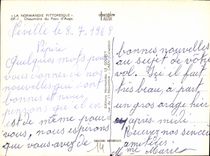 "LA NORMANDIE PITTORESQUE"
Chaumière du Pays d'Auge
le 8.7.1969
Pépée
Quelques mots pour
vous donner de nos
nouvelles qui sont
bonnes et nous
pensons qu'il en
est de même pour
vous, nous espérons
que vous avez de
bonnes nouvelles
au sujet de votre
vol. Ici il fait
très beau, à part
un gros orage hier
après midi.
Recevez nos sincères
amitiés.
Mme Marie